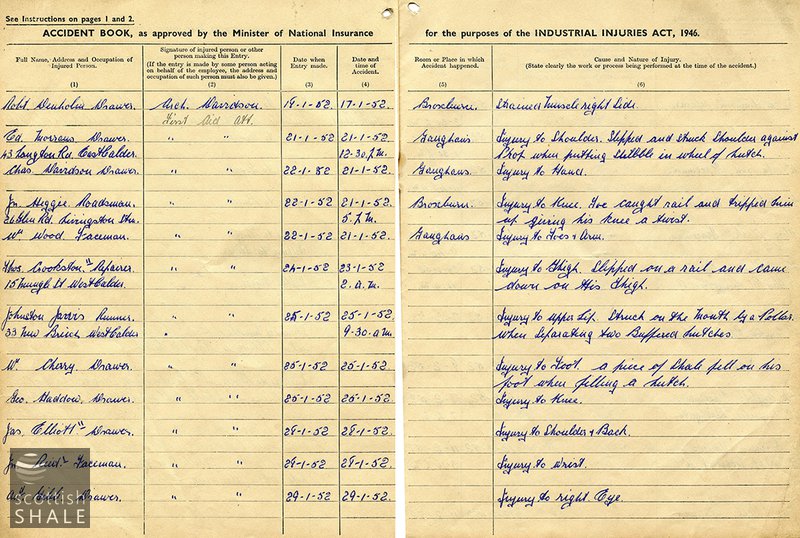 See Instructions on pages 1 and 2.
ACCIDENT BOOK, as approved by the Minister of National Insurance for the purposes of the INDUSTRIAL INJURIES ACT, 1946.
Full Name, Address and Occupation of Injured Person.
(1)
Signature of injured person or other person making this Entry.
(If the entry is made by some person acting on behalf of the employee, the address and occupation of such person must also be given.)
(2)
Date when Entry made.
(3)
Date and time of Accident.
(4)
Room or Place in which Accident happened.
(5)
Cause and Nature of Injury.
(State clearly the work or process being performed at the time of the accident.)
(6)
Robt Denholm Drawer. Arch. Davidson. 19-1-52. 17-1-52. Broxburn. Strained muscle right Side.
First Aid Att.
Ed. Morrans Drawer. " " 21-1-52 21-1-52. Gaughans Injury to Shoulder. Slipped and struck Shoulder against
43 Langton Rd. East Calder. 12-30 p.m. Prop when putting in wheel of hutch.
Chas Davidson Drawer " " 22-1-52 21-1-52. Gaughans Injury to Hand.
Jn. Heggie Roadsman. " " 22-1-52 21-1-52. Broxburn. Injury to Knee. Toe caught rail and tripped him
Rd. Livingston Stn. 5 p.m. up giving his knee a twist.
Wm Wood Faceman. " " 22-1-52 21-1-52. Gaughans Injury to Toes & Arm.
Thos. Crookston Repairer " " 24-1-52 23-1-52 Injury to Thigh. Slipped on a rail and came
15 Mungle St West Calder. 2. a.m. down on His Thigh.
Johnston Jarvis Runner. " " 25-1-52 25-1-52. Injury to upper Lip. Struck on the mouth by a Collar
33 New Breich West Calder 9-30. a.m. when Separating two Buffered hutches.
Wm Cherry Drawer. " " 25-1-52 25-1-52. Injury to Foot. a piece of Shale fell on his
foot when filling a hutch.
Geo. Haddow, Drawer. " " 25-1-52 25-1-52. Injury to Knee.
Jas. Elliott Drawer. " " 29-1-52 29-1-52. Injury to Shoulder & Back.
Faceman. " " 29-1-52 29-1-52. Injury to wrist.
Drawer. " " 29-1-52 29-1-52. Injury to right Eye.
SCOTTISH
SHALE